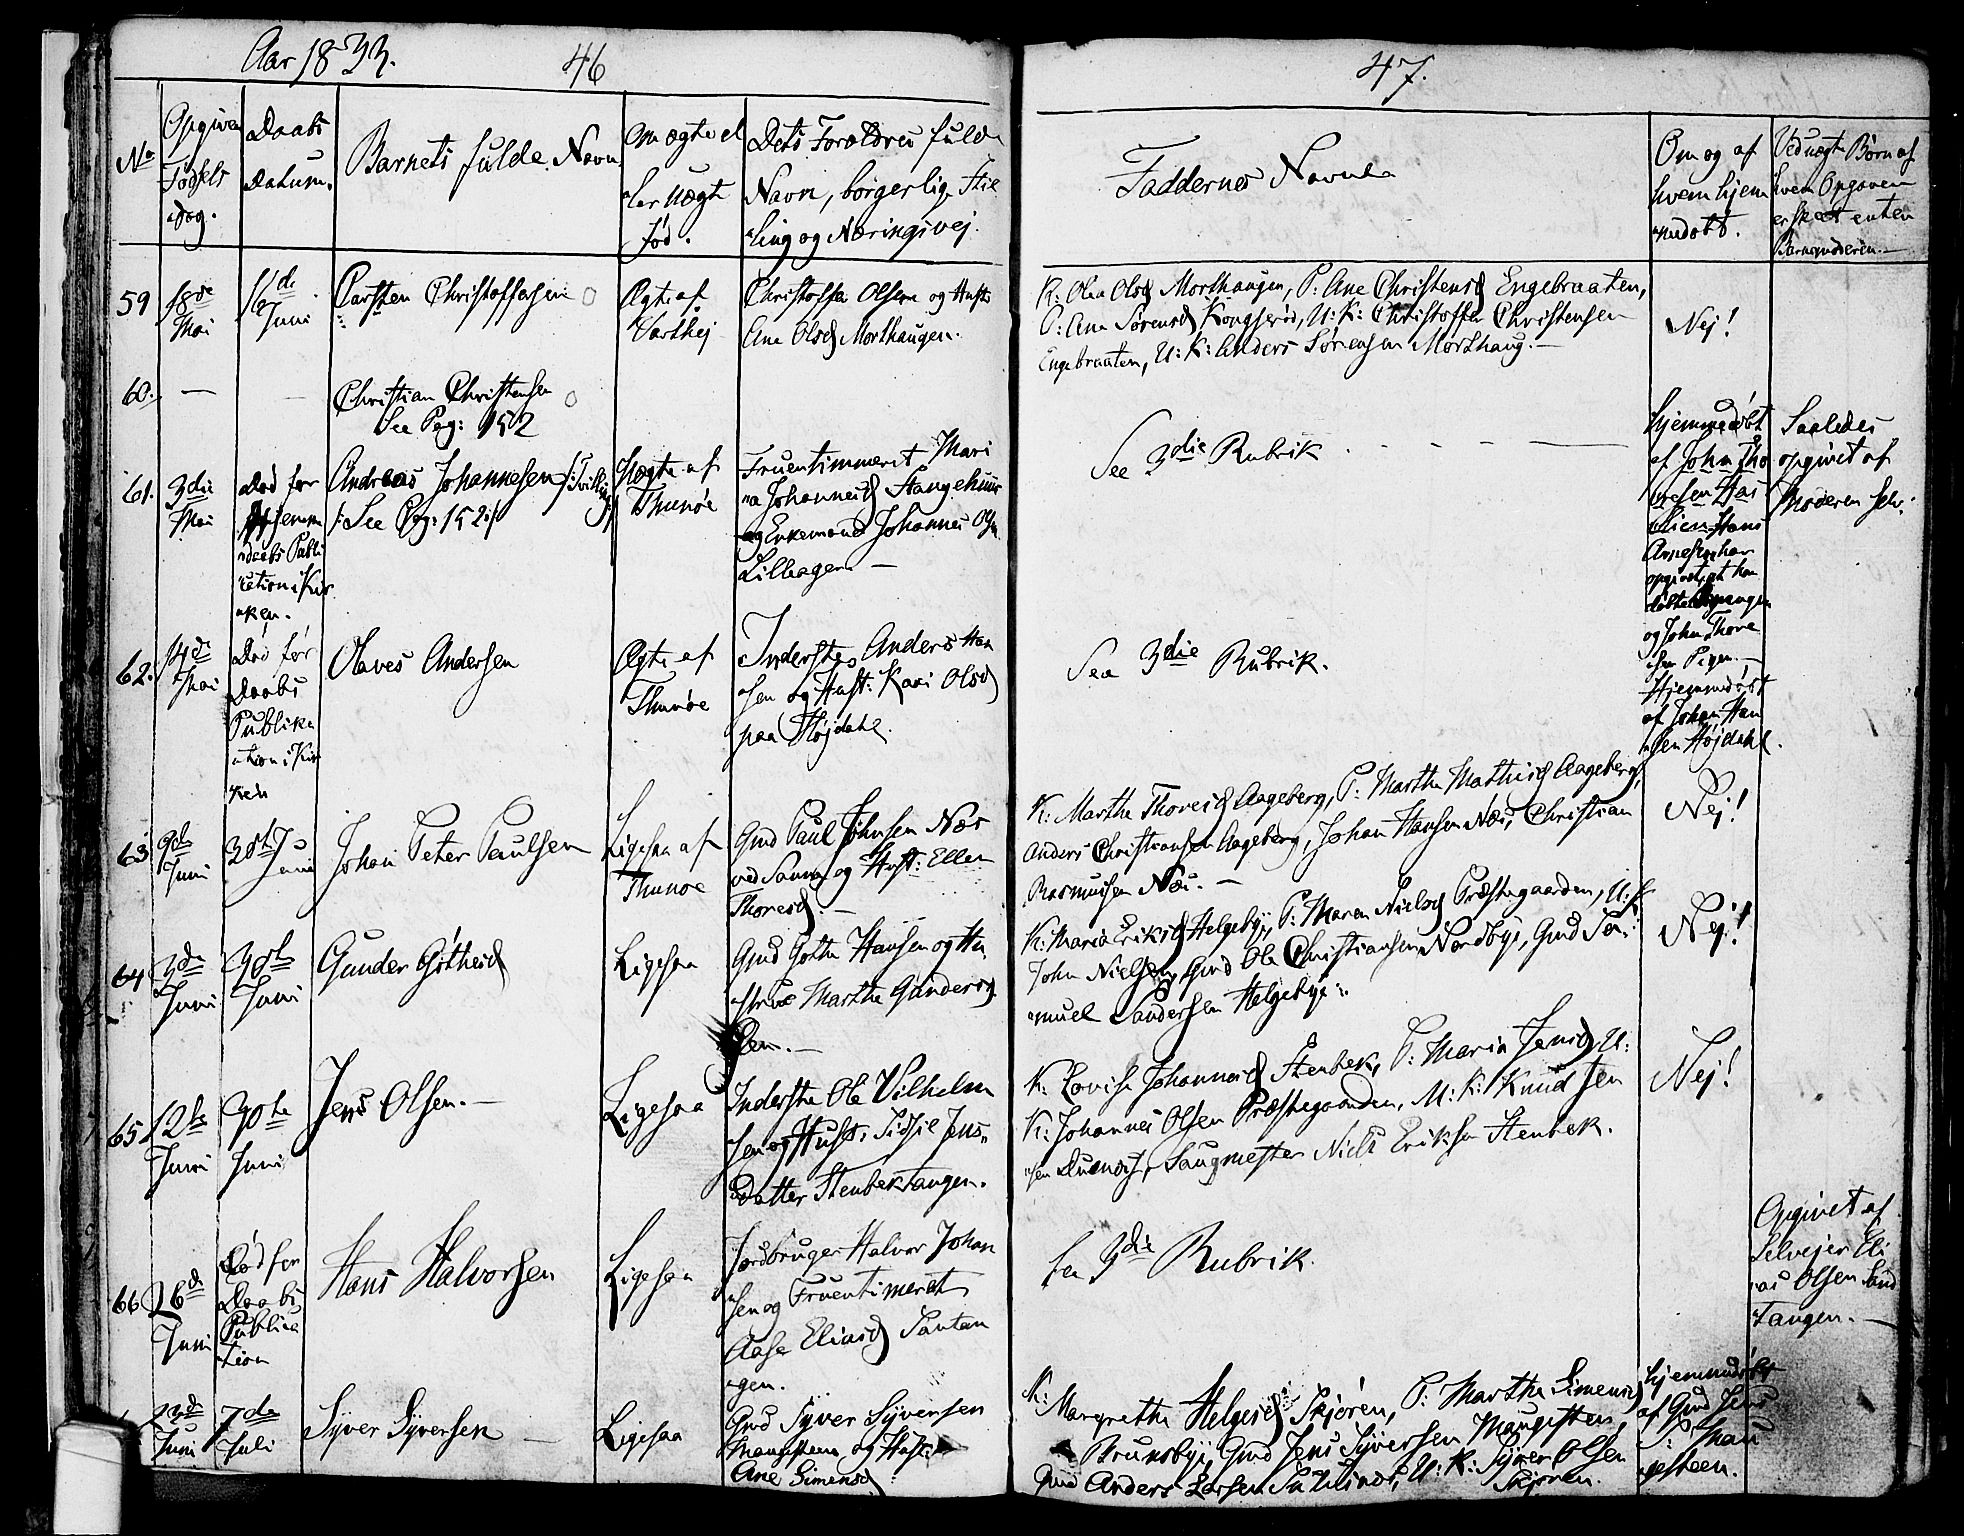 Aar 1833.
46
No
Opgiven
Fødsels
Dag.
Daabs
Datum.
Barnets fulde Navn
Om ægte el
ler uægte
fød.
Dets Forældres fulde
Navn, borgerlig Stil
ling og Næringsvej.
59
18de
Mai
16de
Juni
Carsten Christoffersen
Ægte af
Varthej
Christoffer Olsen og Hust:
Ane Olsd Morthaugen.
60.
—
—
Christian Christensen
See Pag: 152
61.
3die
Mai
Død før
Hjemme
daabs Publi
cation i Kir
ken.
Andreas Johannesen /:Tvilling:/
/:See Pag: 152:/
Uægte af
Thunøe
Fruentimmeret Mari
a Johannesd Stangehuus
og Enkemand Johannes Ols
Lilhagen —
62.
14de
Mai
Død før
Daabs
Publika
tion i Kir
ken
Olaves Andersen
Ægte af
Thunøe
Inderster Anders Han
sen og Hust: Kari Olsd
paa Højdahl.
63
9de
Juni
30te
Juni
Johan Peter Paulsen
Ligesaa af
Thunøe
Gmd Paul Johnsen Næs
ved Sanna og Hust: Ellen
Thoresd. —
64
3de
Juni
30te
Juni
Gunder Gøthesd
Ligesaa
Gmd Gothe Hansen og Hu
strue Marthe Gundersd
Øen. —
65
12te
Juni
30te
Juni
Jens Olsen. —
Ligesaa
Inderste Ole Vilhelm
sen og Hust: Sidsie Jens
datter Stenbektangen.
66
26de
Juni
Død før
Daabs
Publica
tion
Hans Halvorsen
Ligesaa
Jordbruger Halvor Johan
sen og Fruentimeret
Aase Eliasd Santan
gen.
23de
Juni
7de
Juli
Syver Syversen —
Ligesaa
Gmd Syver Syversen
Maugesteen og Hust:
Ane Simensd
47.
Faddernes Navne
Om og af
hvem hjem
medøbt.
Ved uægte Børn af
hvem Opgaven
er skeet enten
Barnemoderen. —
K: Olea Olsd Morthaugen, P: Ane Christensd Engebraaten,
P: Ane Sørensd Kongsrød, U: K: Christoffer Christensen
Engebraaten, U: K: Anders Sørensen Morthaug. —
Nej!
See 3die Rubrik
Hjemmedøbt
af John Tho
resen Has
lien Hans
Arnesen har
opgivet, at han
døbte Drengen
og John Thore
sen Pigen. —
Saaledes
opgivet af
Moderen selv:
See 3die Rubrik.
Hjemmedøbt
af Johan Han
sen Højdahl.
K: Marthe Thoresd Aageberg, P: Marthe Mathisd Aageberg,
Anders Christiansen Aageberg, Johan Hansen Næs, Christian
Rasmusen Næs. —
Nej!
K: Maria Eriksd Helgebye, P: Maren Nielsd Præstegaarden, U: K
John Nielsen, Gmd Ole Christiansen Nordbye, Gmd Sa
muel Gundersen Helgebye.
Nej!
K: Lovise Johannesd Stenbek, P: Maria Jensd, U:
K: Johannes Olsen Præstegaarden, U: K: Knud Jen
sen, Saugmester Niels Eriksen Stenbek.
Nej!
See 3die Rubrik.
Opgivet af
Selvejer Eli
as Olsen Sand
tangen. —
K: Margrethe Helgesd Skjøren, P: Marthe Simensd
Brunsbye, Gmd Jens Syversen Maugesten,
Gmd Anders Larsen, U: K: Syver Olsen
Skjøren.
Hjemmedøbt
af Gmd Jens
S: Mau
gesteen.